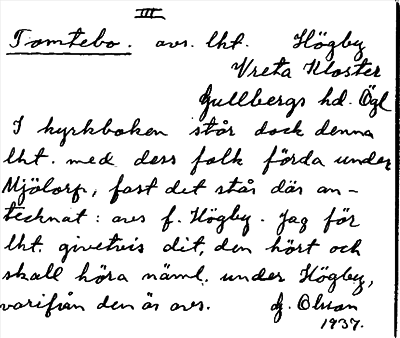 III
Tomtebo. avs. lht. Högby
Vreta Kloster
Gullbergs hd. Ögl
I kyrkboken står dock denna
lht. med dess folk förda under
Mjölorp, fast det står där an-
tecknat: avs f. Högby. Jag för
lht. givetvis dit, den hört och
skall höra näml. under Högby,
varifrån den är avs. G. Olson
1937.